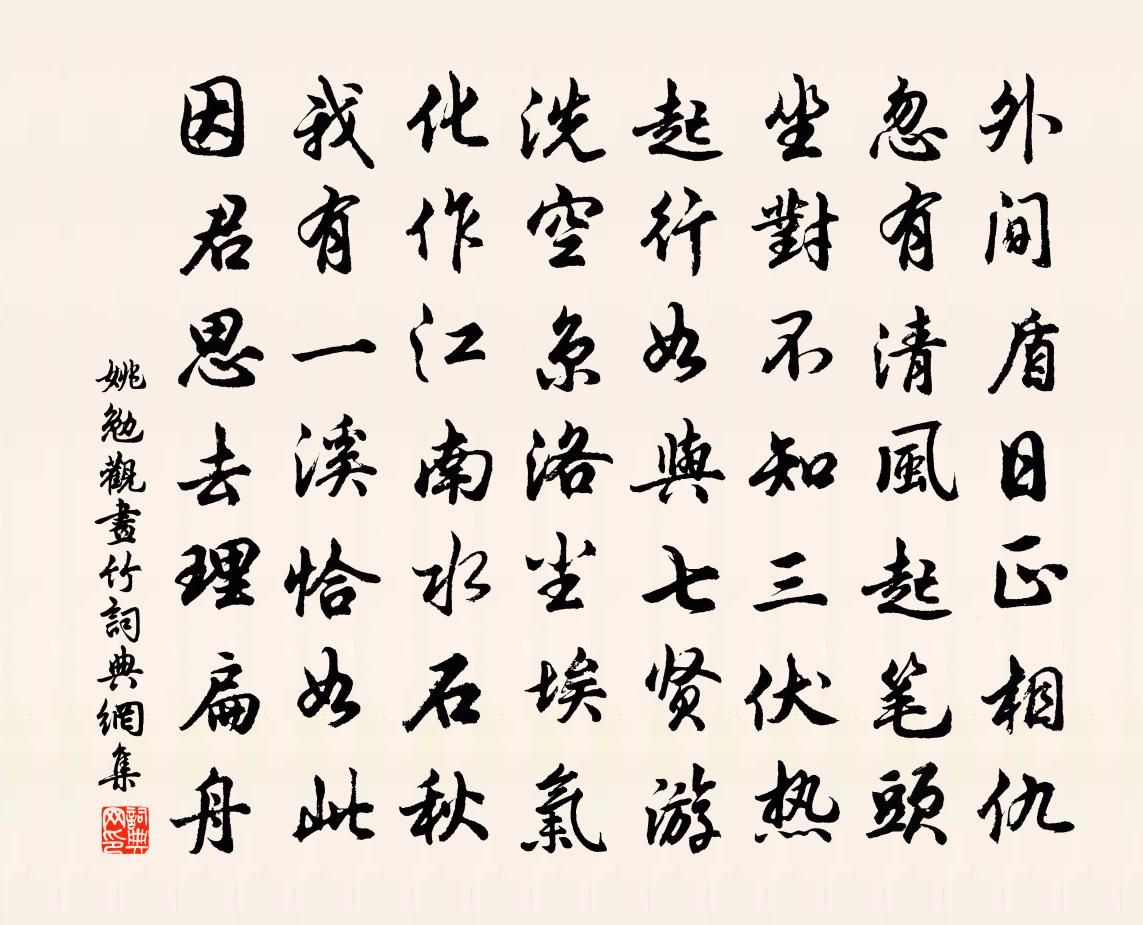 外间盾日正相仇
忽有清風起笔頭
坐對不知三伏热
起行如與七贤游
洗空京洛尘埃氣
化作江南水石秋
我有一溪恰如此
因君思去理扁舟
姚勉觀畫竹詞典網集
詞典網印